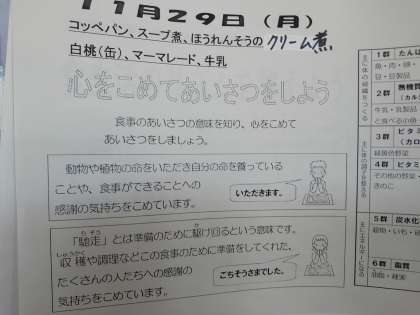 11月29日（月）
コッペパン、スープ煮、ほうれんそうのクリーム煮
白桃(缶)、マーマレード、牛乳
心をこめてあいさつをしよう
食事のあいさつの意味を知り、心をこめて
あいさつをしましょう。
動物や植物の命をいただき自分の命を養っている
ことや、食事ができることへの
感謝の気持ちをこめています。
いただきます。
「馳走」とは準備のために駆け回るという意味です。
収穫や調理などこの食事のために準備をしてくれた、
たくさんの人たちへの感謝の
気持ちをこめています。
ごちそうさまでした。
1群
たんぱ
2群
無機質
(カル
牛乳・乳製品
3群
ビタミ
(カロ
緑黄色野菜
4群
ビタミ
その他の野菜・
きのこ
5群
炭水化
穀物・いも・砂
6群
脂質
油脂・種実